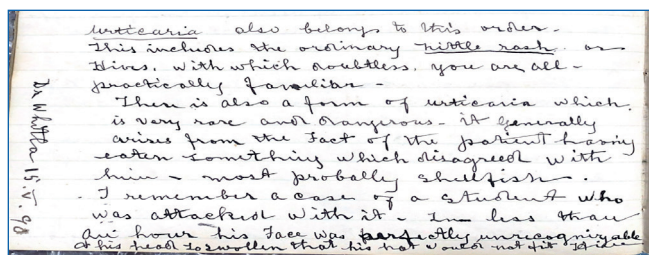 urticaria also belongs to this order -
This includes the ordinary nittle rash or
Hives. with which doubtless. you are all -
practically familiar -
There is also a form of urticaria which
is very rare and dangerous - it generally
arises from the fact of the patient having
eaten something which disagreed with
him - most probally shellfish.
I remember a case of a student who
was attacked with it - In less than
an hour his face was perfectly unrecognizable
& his head so swollen that his hat would not fit
Dr Whitla 15.V.90